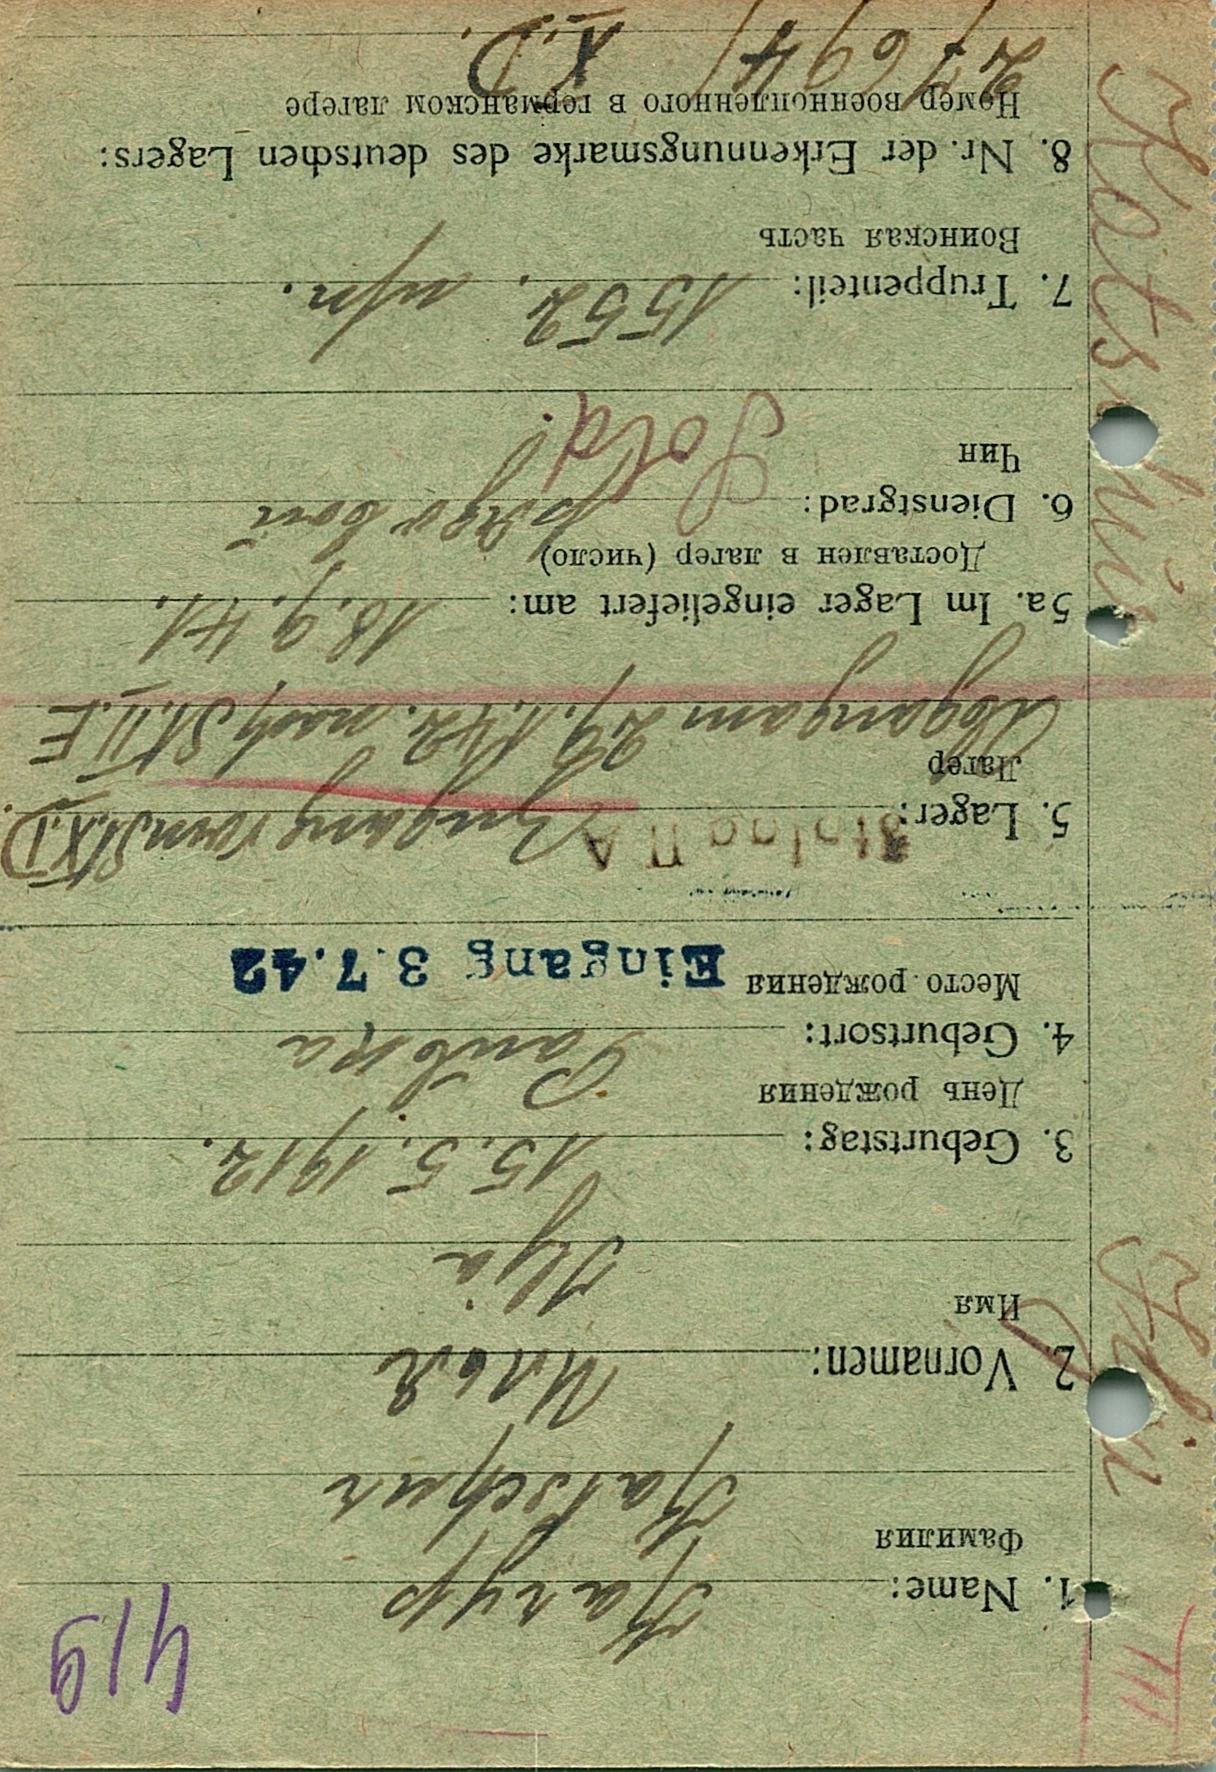 419
III
1. Name: Качур
Фамилия
Katschur
2. Vornamen: Илья
Имя
Ilja
3. Geburtstag: 15.5.1912.
День рождения
4. Geburtsort:
Место рождения Eingang 3.7.42
5. Lager: Stalag II A Zugang vom St. X.D.
Лагер
Abgang am 29.1.42. nach St. II. E
5a. Im Lager eingeliefert am: 18.9.41.
Доставлен в лагер (число)
6. Dienstgrad:
Чин Sold.
7. Truppenteil: 1552.
Воинская часть
8. Nr. der Erkennungsmarke des deutschen Lagers:
Номер военнопленного в германском лагере
27694/ X.D.